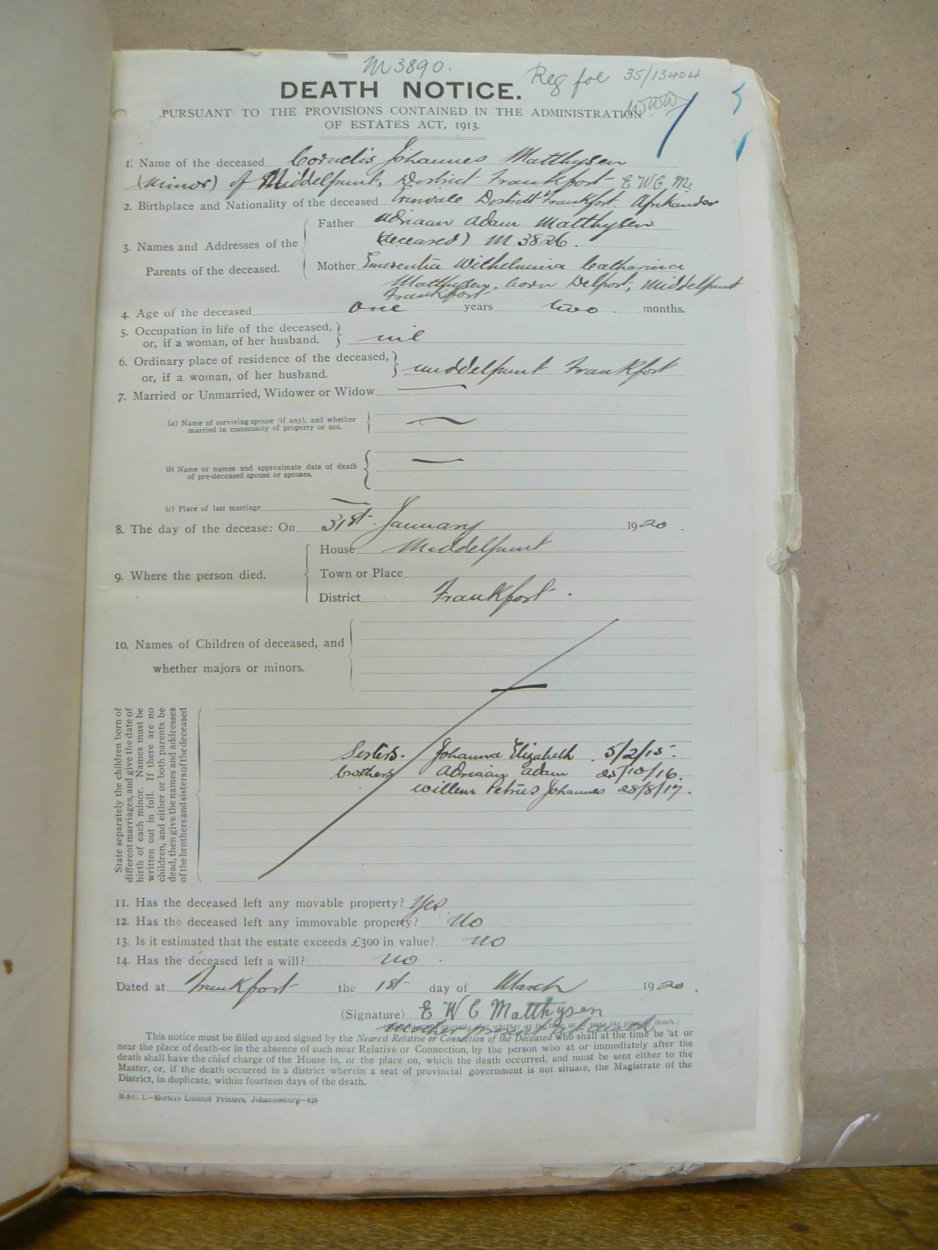 M 3890.
Reg fol 35/13404
DEATH NOTICE.
PURSUANT TO THE PROVISIONS CONTAINED IN THE ADMINISTRATION
OF ESTATES ACT, 1913.
1. Name of the deceased Cornelis Johannes Matthysen
(minor) of Middelpunt, District Frankfort E W C M.
2. Birthplace and Nationality of the deceased District Frankfort. Afrikander
3. Names and Addresses of the Parents of the deceased.
Father Adriaan Adam Matthysen
(deceased) M 3826.
Mother Emerentia Wilhelmina Catharina
Matthysen, born Delport, Middelpunt
Frankfort
4. Age of the deceased one years two months.
5. Occupation in life of the deceased,
or, if a woman, of her husband. nil
6. Ordinary place of residence of the deceased,
or, if a woman, of her husband. middelpunt Frankfort
7. Married or Unmarried, Widower or Widow
(a) Name of surviving spouse (if any), and whether
married in community of property or not.
(b) Name or names and approximate date of death
of pre-deceased spouse or spouses.
(c) Place of last marriage
8. The day of the decease: On 31st January 1920
9. Where the person died.
House Middelpunt
Town or Place
District Frankfort.
10. Names of Children of deceased, and
whether majors or minors.
State separately the children born of
different marriages, and give the date of
birth of each minor. Names must be
written out in full. If there are no
children, and either or both parents be
dead, then give the names and addresses
of the brothers and sisters of the deceased
Sisters. Johanna Elizabeth 5/2/15.
brothers Adriaan Adam 25/10/16.
Willem Petrus Johannes 28/8/17.
11. Has the deceased left any movable property? Yes
12. Has the deceased left any immovable property? No
13. Is it estimated that the estate exceeds £300 in value? no
14. Has the deceased left a will? no.
Dated at Frankfort the 1st day of March 1920.
(Signature) E W C Matthysen
This notice must be filled up and signed by the Nearest Relative or Connection of the Deceased who shall at the time be at or
near the place of death—or in the absence of such near Relative or Connection, by the person who at or immediately after the
death shall have the chief charge of the House in, or the place on, which the death occurred, and must be sent either to the
Master, or, if the death occurred in a district wherein a seat of provincial government is not situate, the Magistrate of the
District, in duplicate, within fourteen days of the death.
Horters Limited Printers, Johannesburg